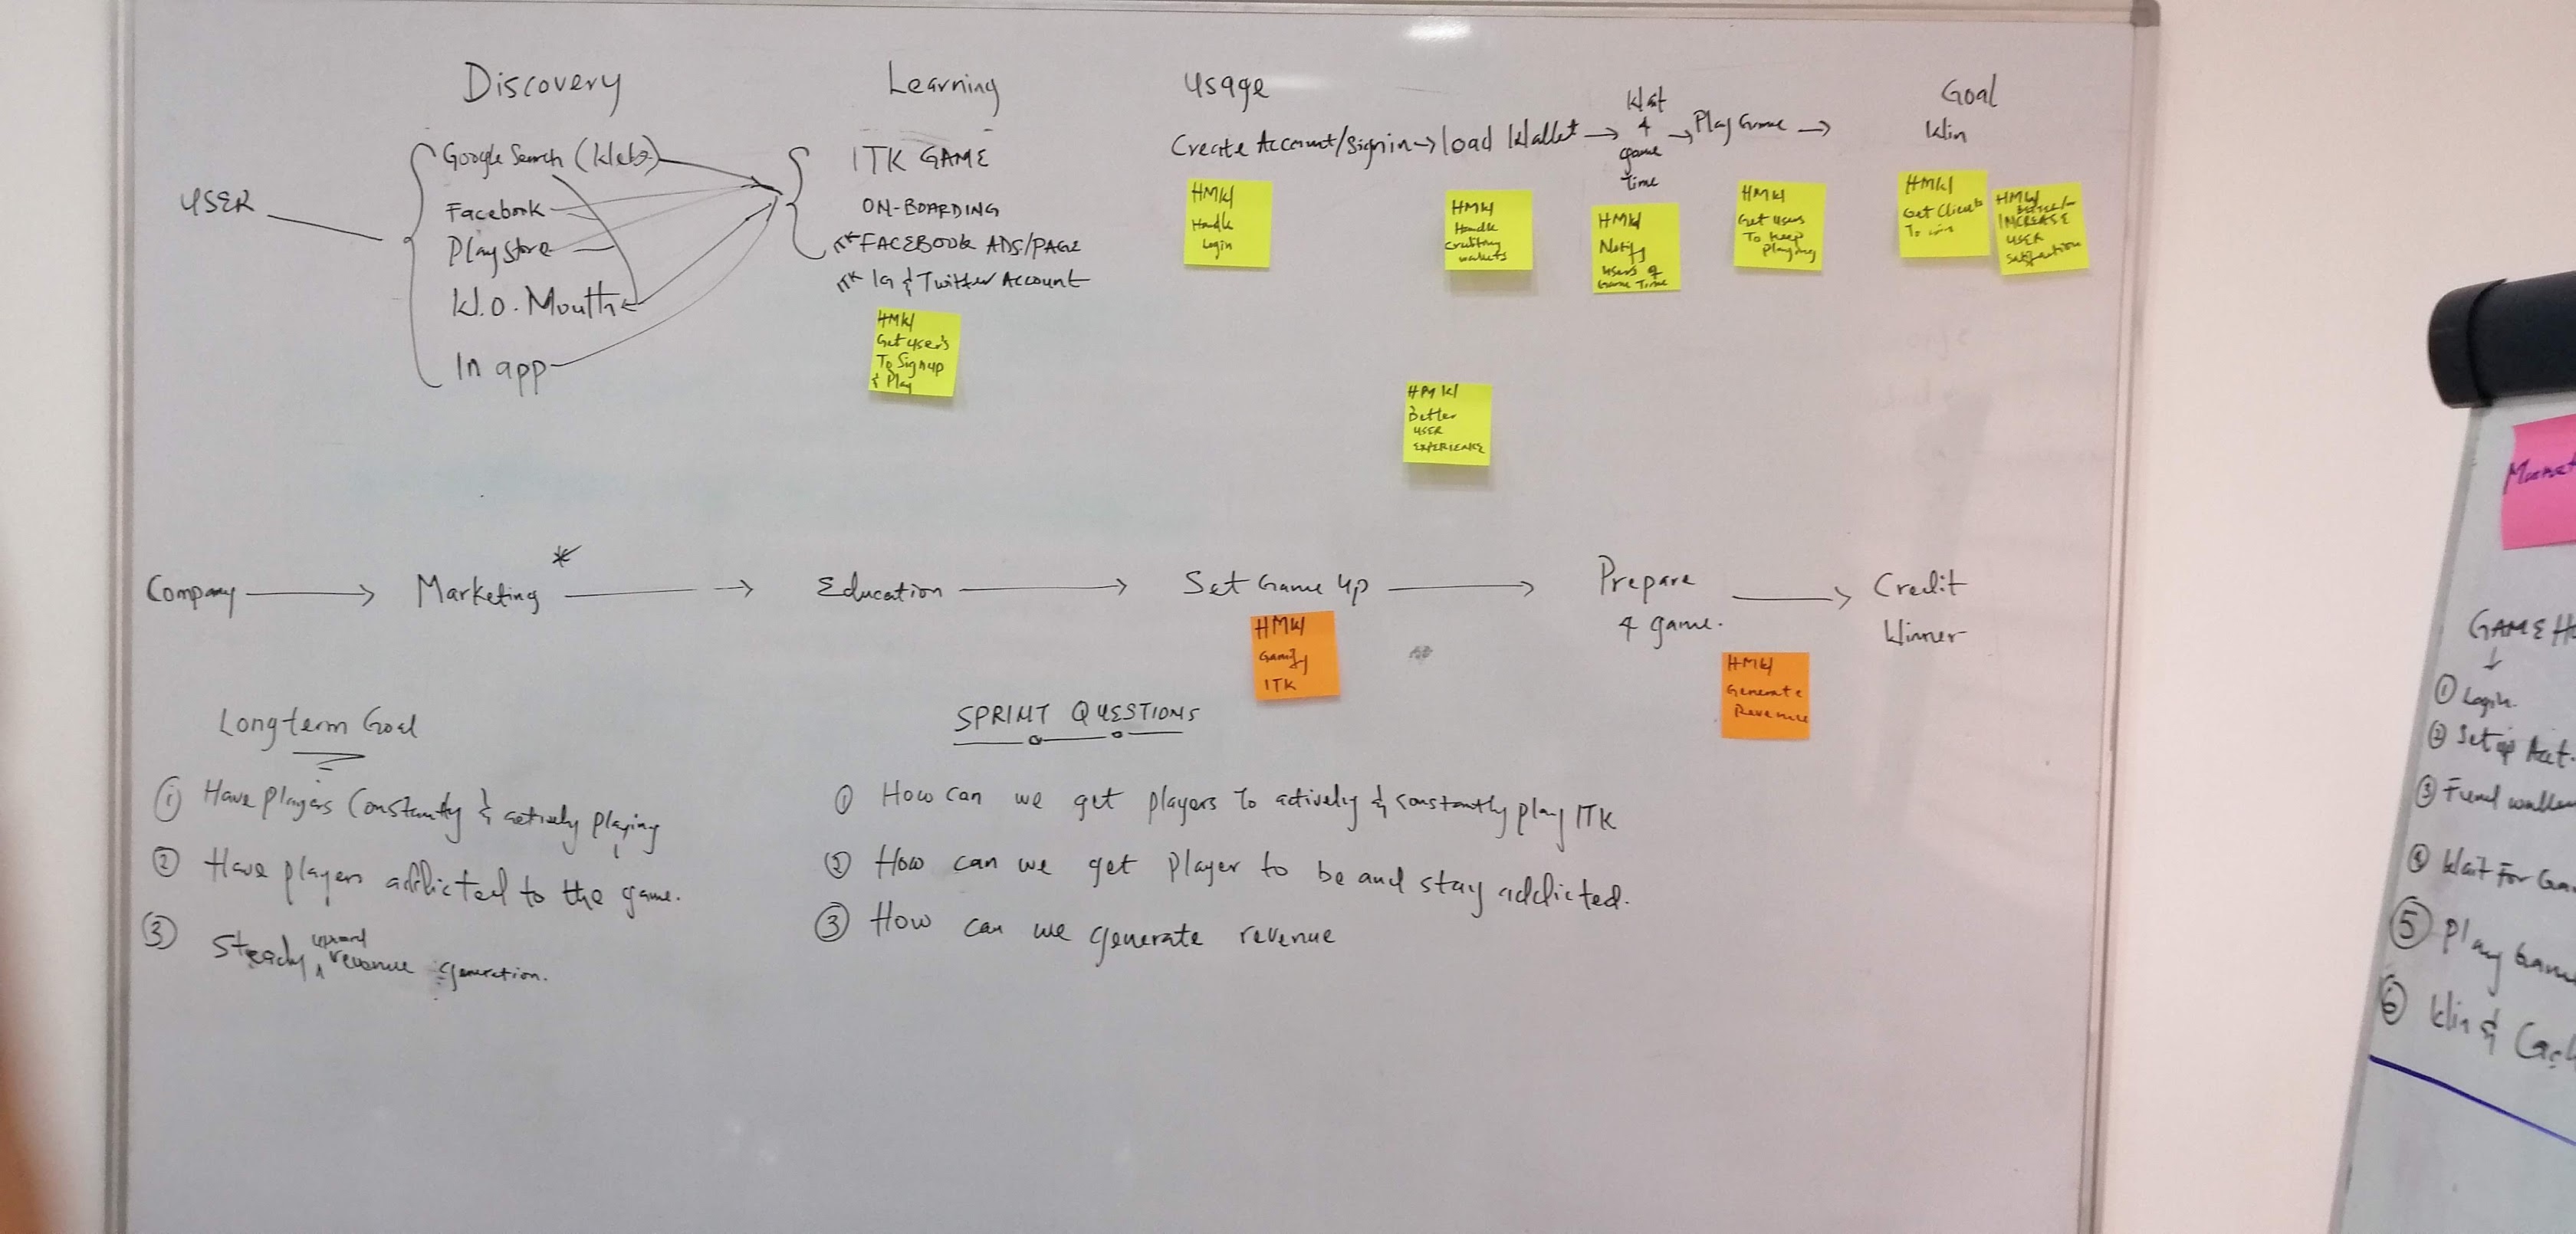 Discovery
Learning
Usage
Goal
USER
Google Search (Web)
Facebook
Play Store
W.O. Mouth
In app
ITK GAME
ON-BOARDING
ITK FACEBOOK ADS/PAGE
ITK IG & Twitter Account
HMW
Get user's
To Signup
& Play
Create Account/Signin → load Wallet → Wait 4 game Time → Play Game →
Win
HMW
Handle
Login
HMW
Handle
Crediting
wallets
HMW
Notify
users of
Game Time
HMW
Get users
To keep
playing
HMW
Get Clients
To win
HMW
INCREASE
USER
Satisfaction
HMW
Better
USER
EXPERIENCE
Company → Marketing * → Education → Set Game Up → Prepare 4 game. → Credit Winner
HMW
Gamify
ITK
HMW
Generate
Revenue
Longterm Goal
① Have players Constantly & actively playing
② Have players addicted to the game.
③ Steady upward revenue generation.
SPRINT QUESTIONS
① How can we get players to actively & constantly play ITK
② How can we get player to be and stay addicted.
③ How can we generate revenue
GAME
↓
① Login.
② Set up Acct.
③ Fund
④ Wait For
⑤ Play
⑥ Win &